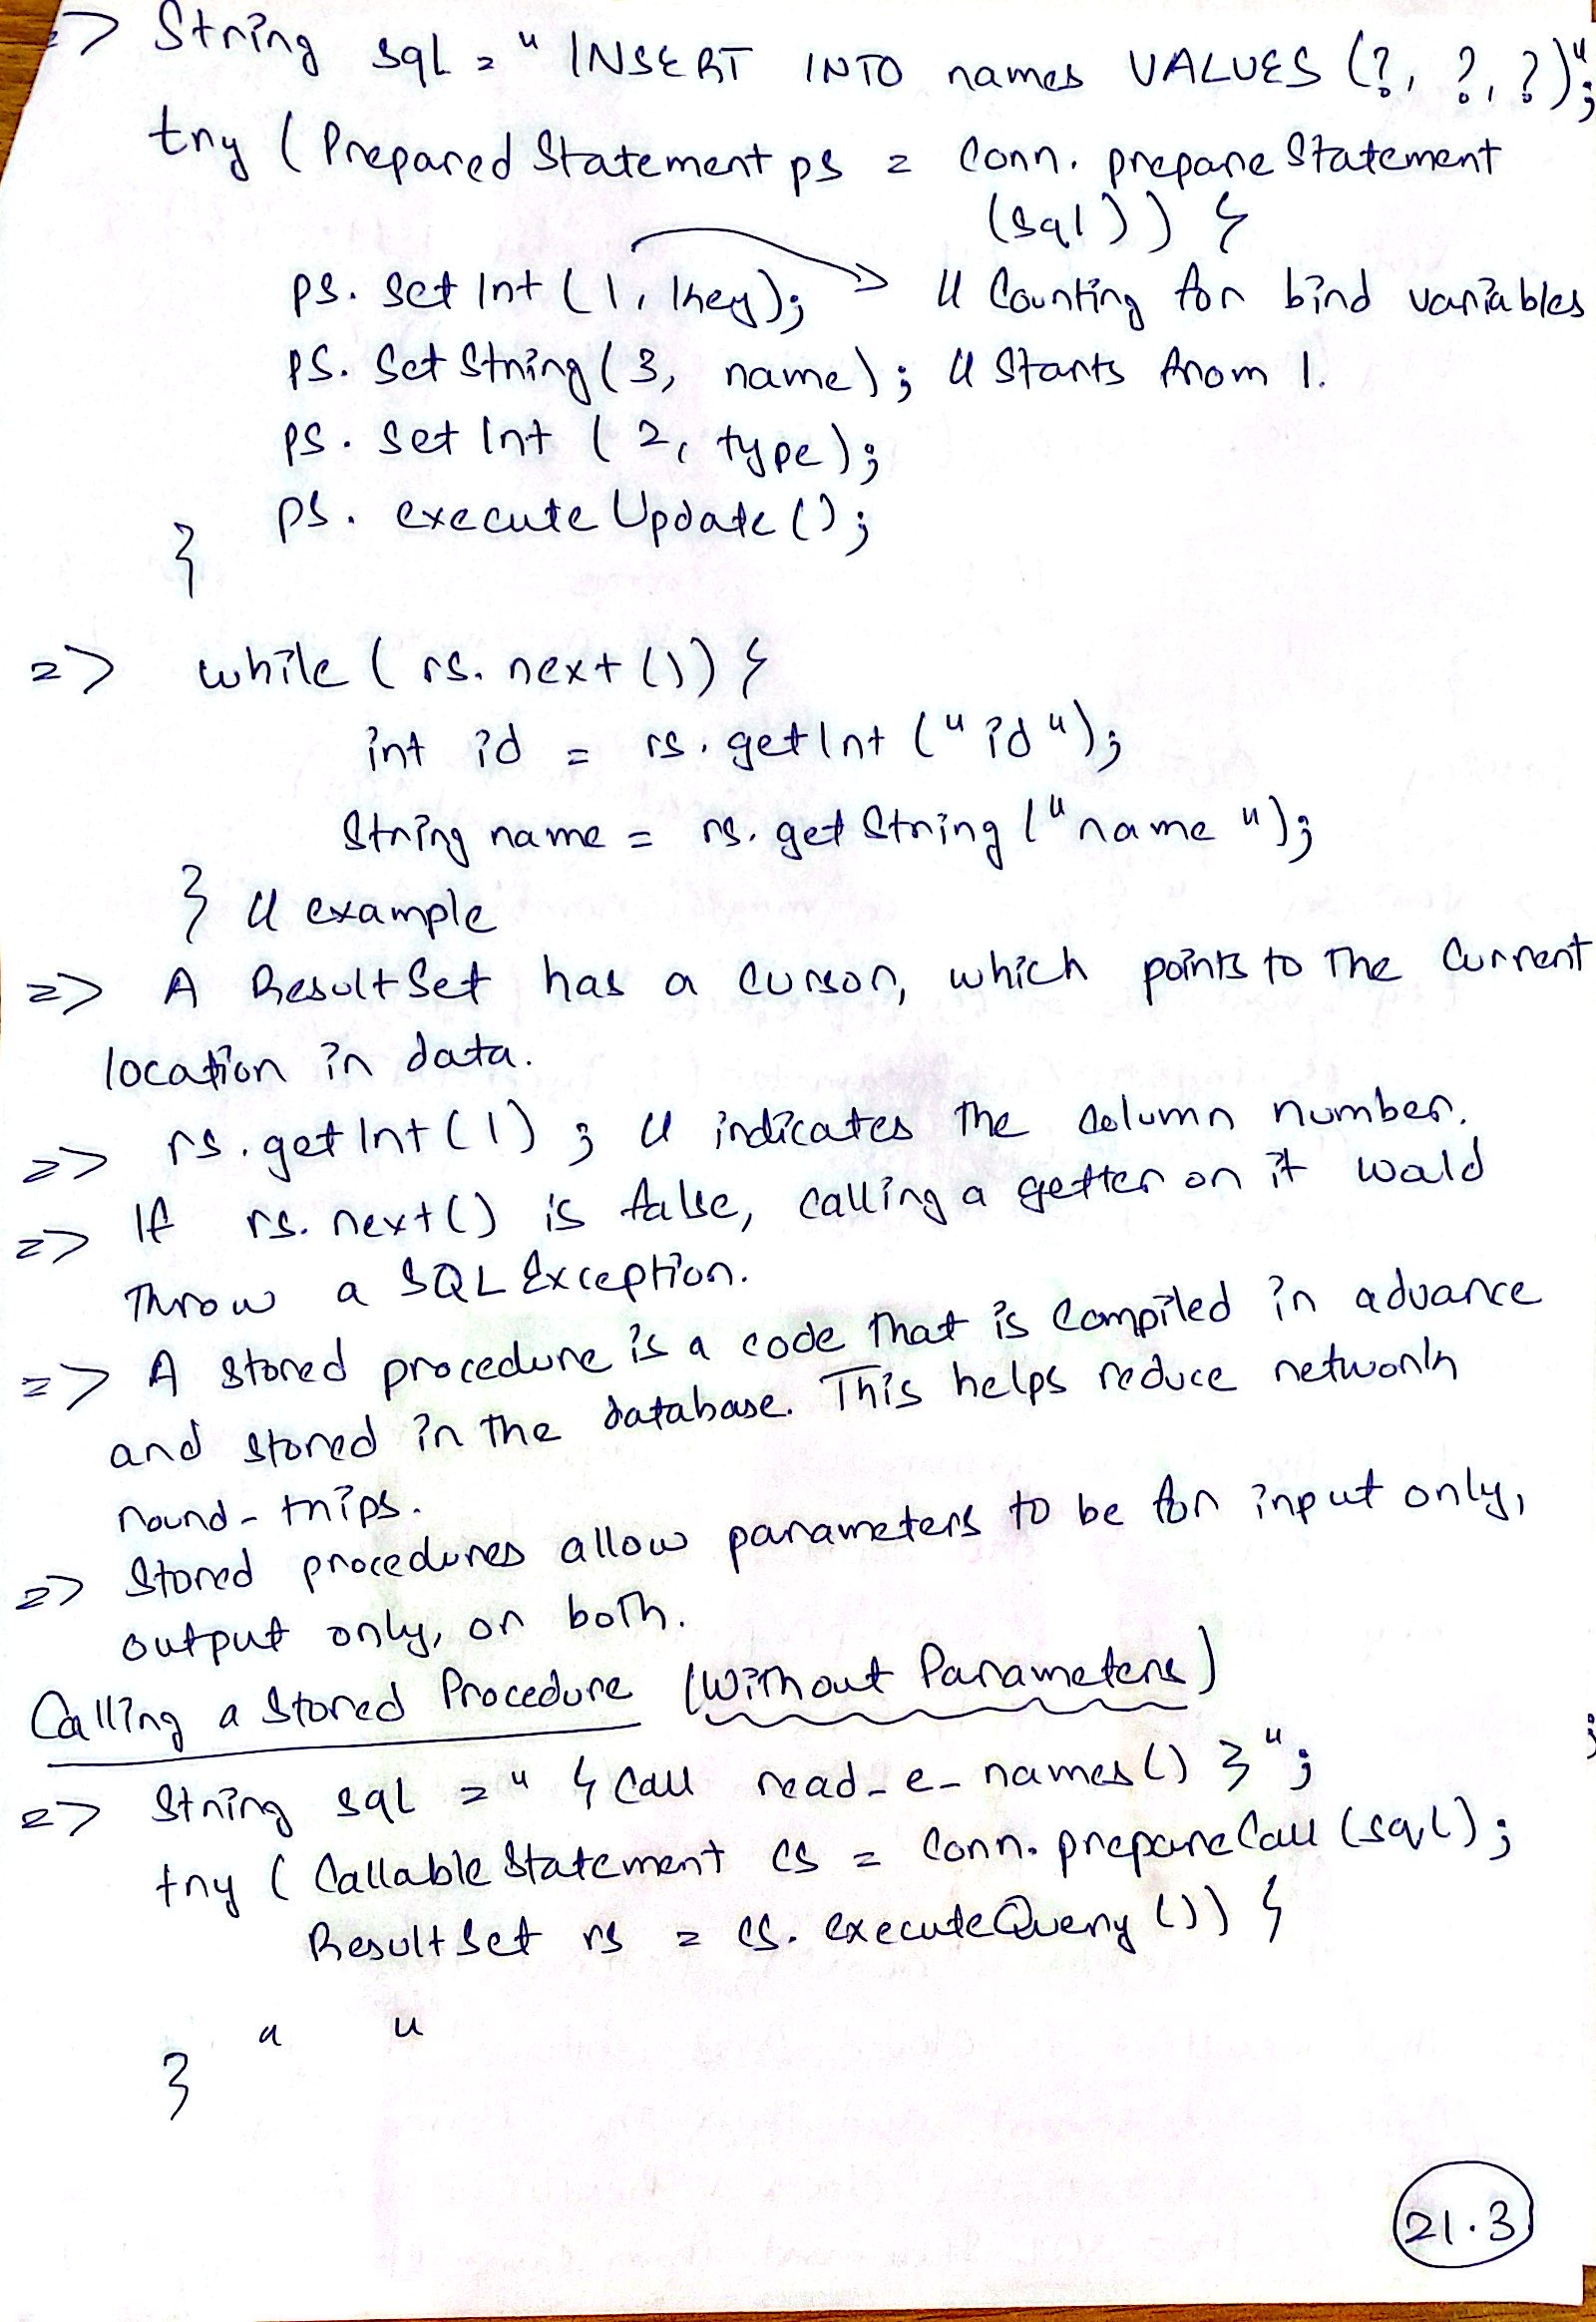 => String sql = "INSERT INTO names VALUES (?, ?, ?)";
try (PreparedStatement ps = conn.prepareStatement
(sql)) {
ps.setInt(1, key); → // Counting for bind variables
ps.setString(3, name); // Starts from 1.
ps.setInt(2, type);
ps.executeUpdate();
}
=> while (rs.next()) {
int id = rs.getInt("id");
String name = rs.getString("name");
} // example
=> A ResultSet has a cursor, which points to the current
location in data.
=> rs.getInt(1); // indicates the column number.
=> If rs.next() is false, calling a getter on it would
throw a SQLException.
=> A stored procedure is a code that is compiled in advance
and stored in the database. This helps reduce network
round-trips.
=> Stored procedures allow parameters to be for input only,
output only, or both.
Calling a Stored Procedure (Without Parameters)
=> String sql = "{call read_e_names()}";
try (CallableStatement cs = conn.prepareCall(sql);
ResultSet rs = cs.executeQuery()) {
" "
}
;
21.3